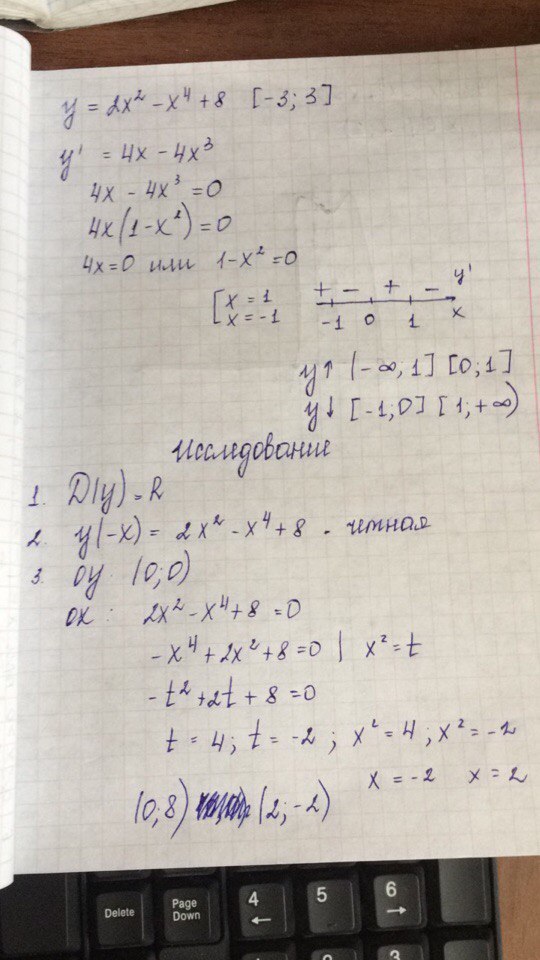 y = 2x² - x⁴ + 8 [-3; 3]
y' = 4x - 4x³
4x - 4x³ = 0
4x(1-x²) = 0
4x=0 или 1-x² = 0
[x = 1
x = -1
+ - + - y'
-1 0 1 x
y↑ (-∞, 1] [0; 1]
y↓ [-1; 0] [1; +∞)
Исследование
1. D(y) = R
2. y(-x) = 2x² - x⁴ + 8 - четная
3. OY: (0; 0)
OX: 2x² - x⁴ + 8 = 0
-x⁴ + 2x² + 8 = 0 | x² = t
-t² + 2t + 8 = 0
t = 4; t = -2; x² = 4; x² = -2
x = -2 x = 2
(0; 8) (2; -2)
Delete
Page Down
4
←
5
6
→
2
3